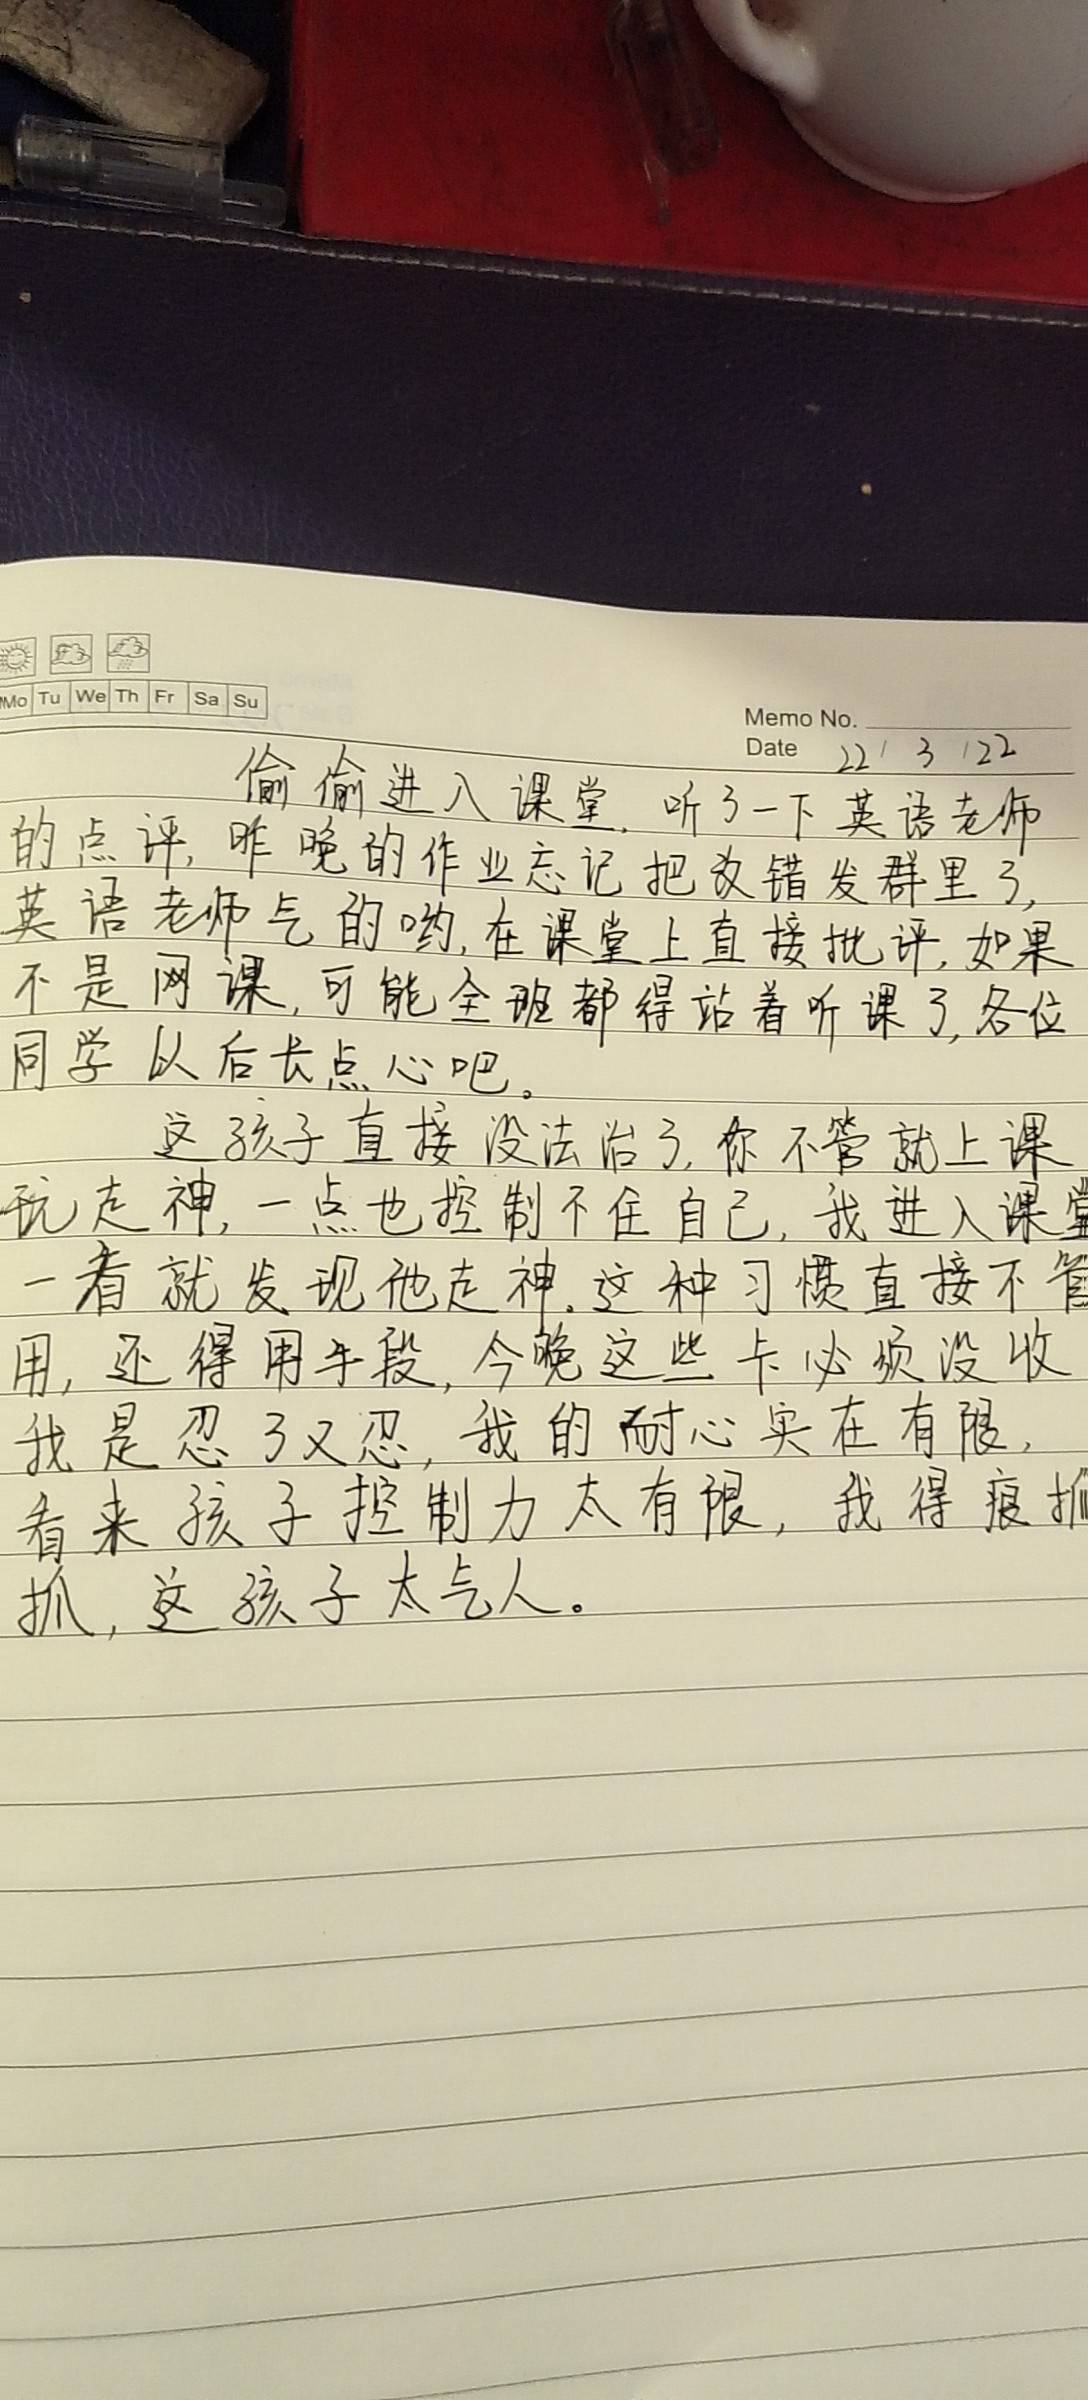 Mo Tu We Th Fr Sa Su
Memo No.
Date 22 / 3 / 22
偷偷进入课堂,听了一下英语老师
的点评,昨晚的作业忘记把改错发群里了,
英语老师气的哟,在课堂上直接批评,如果
不是网课,可能全班都得站着听课了,各位
同学以后长点心吧。
这孩子直接没法治了,你不管就上课
玩走神,一点也控制不住自己,我进入课堂
一看就发现他走神,这种习惯直接不管
用,还得用手段,今晚这些卡必须没收
我是忍了又忍,我的耐心实在有限,
看来孩子控制力太有限,我得痕抓
抓,这孩子太气人。